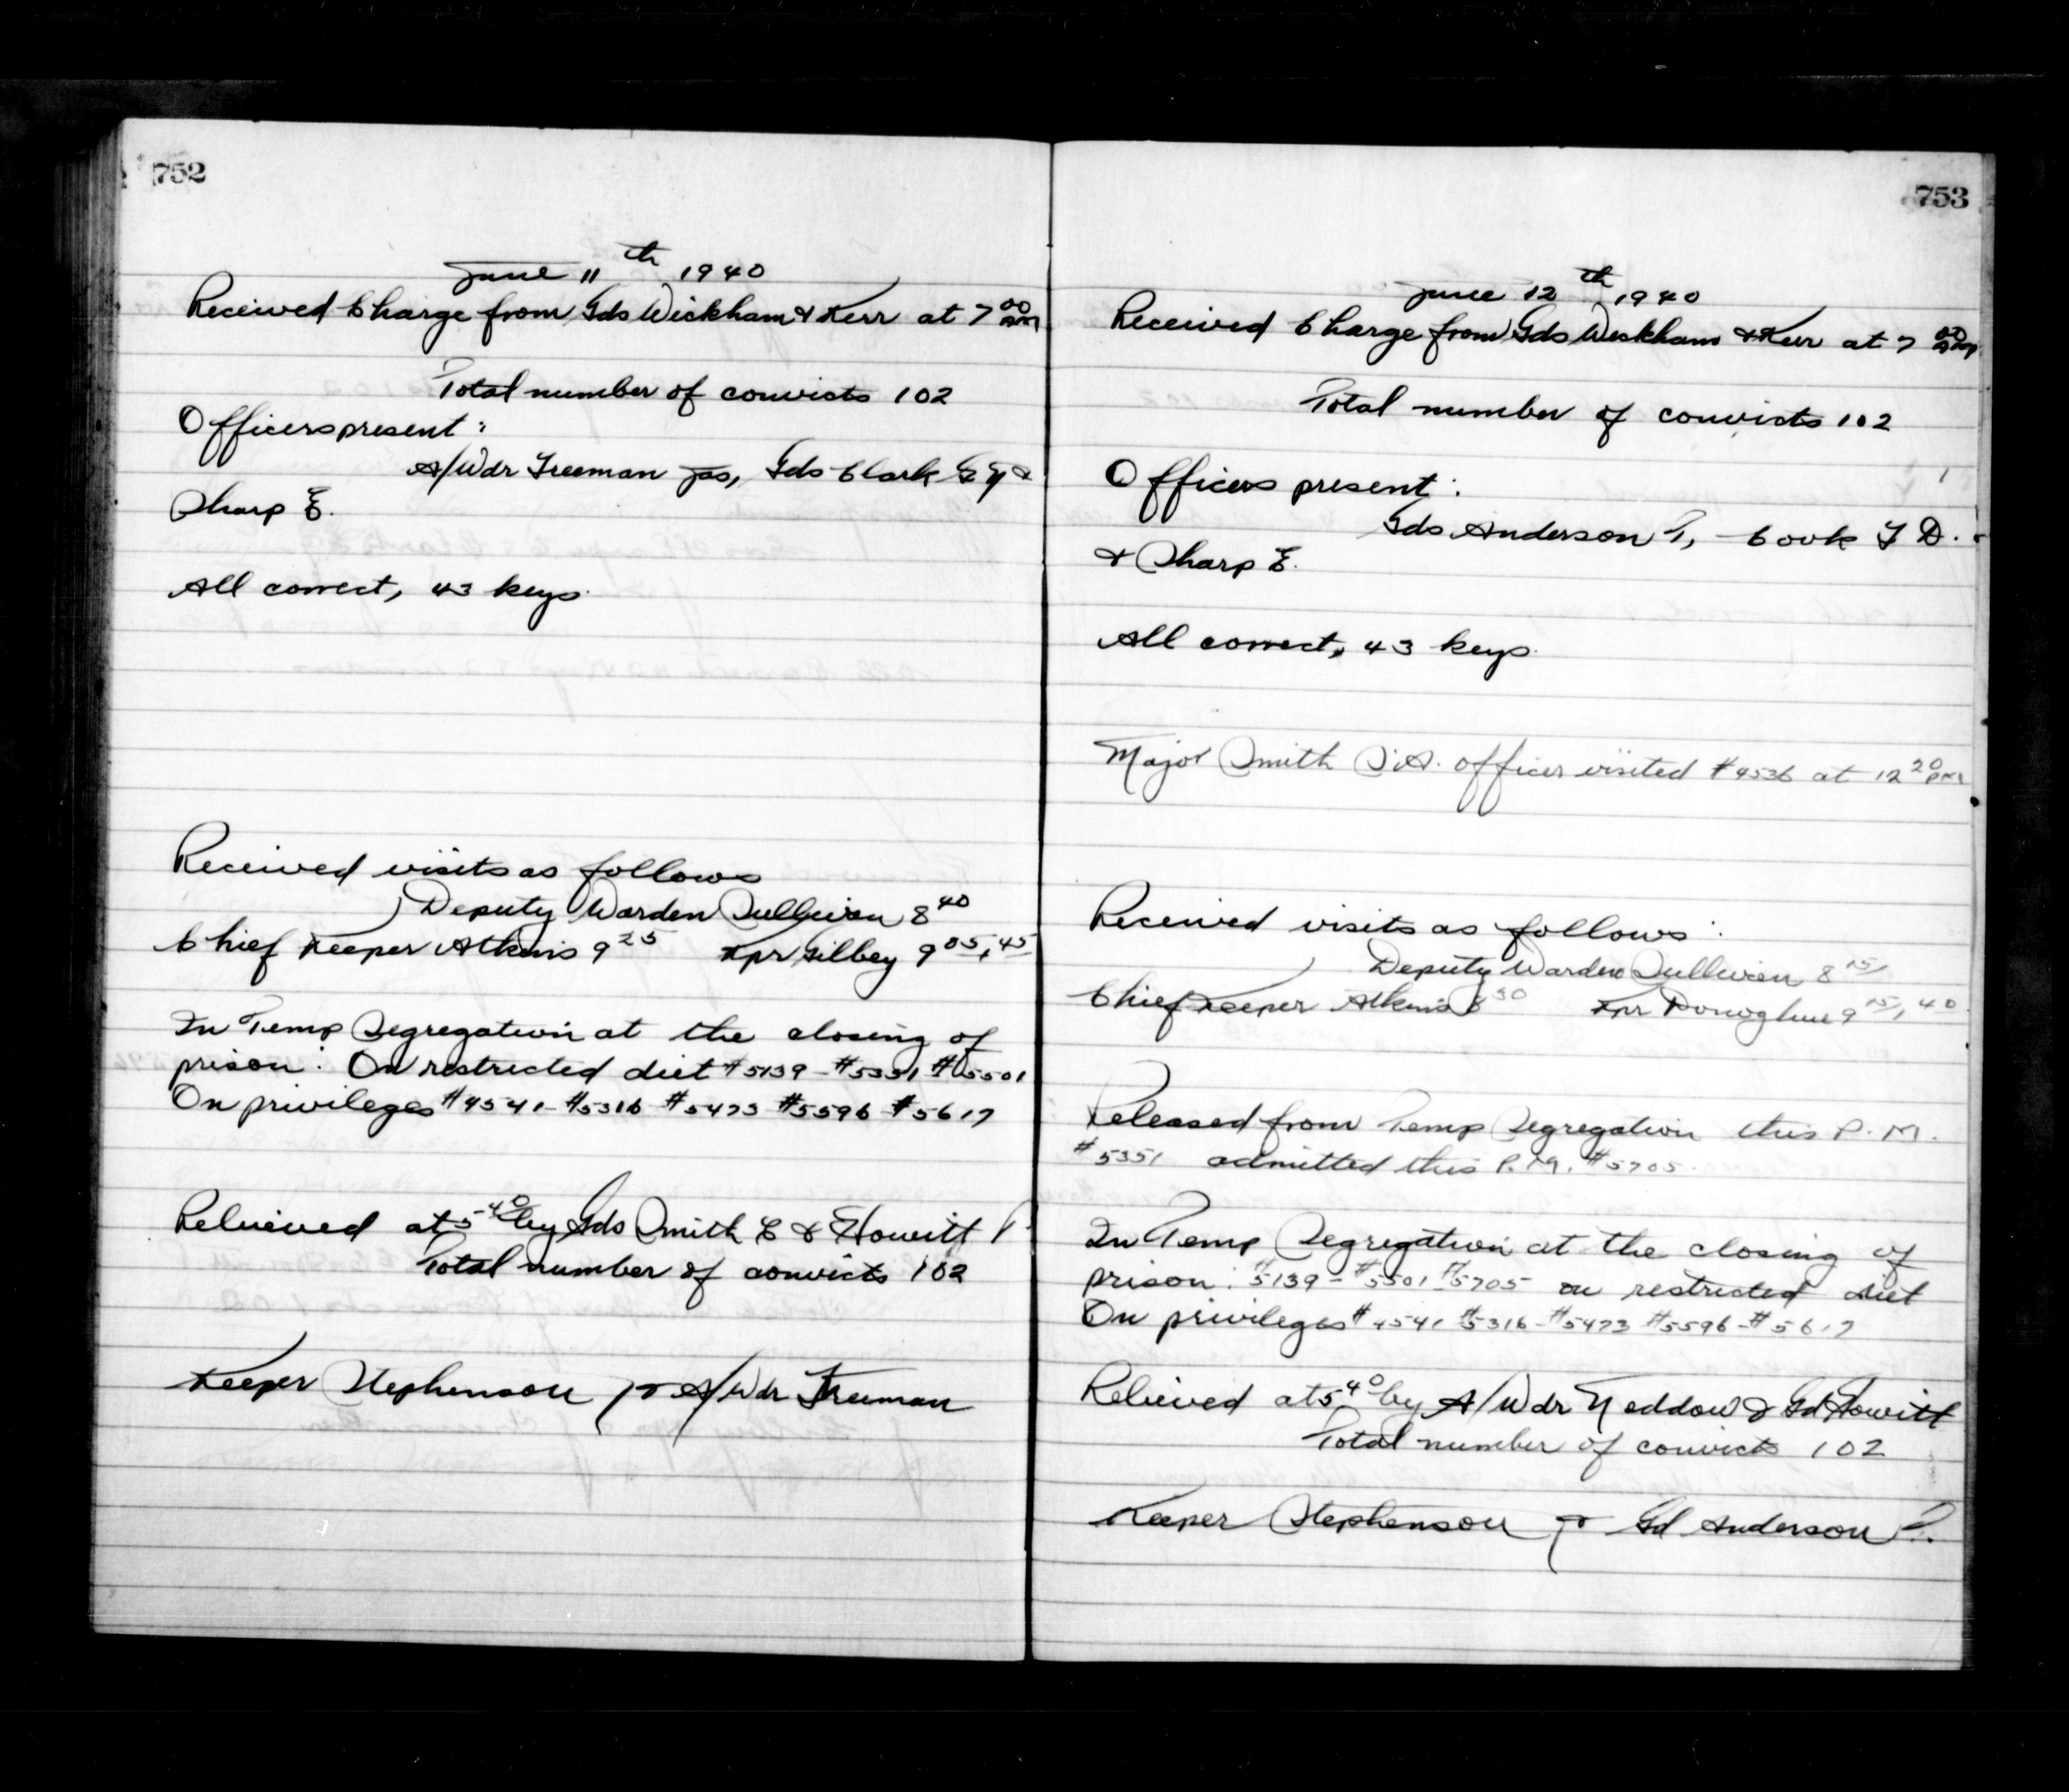 752
June 11th 1940
Received Charge from Gds Wickham & Kerr at 7 00 AM
Total number of convicts 102
Officers present:
A/Wdr Freeman Jas, Gds Clark G Y &
Sharp E.
All correct, 43 keys.
Received visits as follows
Deputy Warden Sullivan 8 40
Chief Keeper Atkins 9 25 Kpr Gilbey 9 05, 45
In Temp Segregation at the closing of
prison: On restricted diet #5139 - #5351 #5501
On privileges #4541 - #5316 - #5473 - #5596 - #5617
Relieved at 5 40 by Gds Smith C & Howitt P
Total number of convicts 102
Keeper Stephenson pr A/Wdr Freeman
753
June 12th 1940
Received Charge from Gds Wickham & Kerr at 7 00 AM
Total number of convicts 102
Officers present:
Gds Anderson P, Cook F D.
& Sharp E.
All correct, 43 keys.
Major Smith S.A. officer visited #4536 at 12 20 PM
Received visits as follows:
Deputy Warden Sullivan 8 15
Chief Keeper Atkins 8 30 Kpr Donoghue 9 15, 40
Released from Temp Segregation this P.M.
#5351 admitted this P.M. #5705.
In Temp Segregation at the closing of
prison: #5139 - #5501 - #5705 on restricted diet
On privileges #4541 #5316 - #5473 #5596 - #5617
Relieved at 5 40 by A/Wdr Neddow & Gd Howitt
Total number of convicts 102
Keeper Stephenson pr Gd Anderson P.